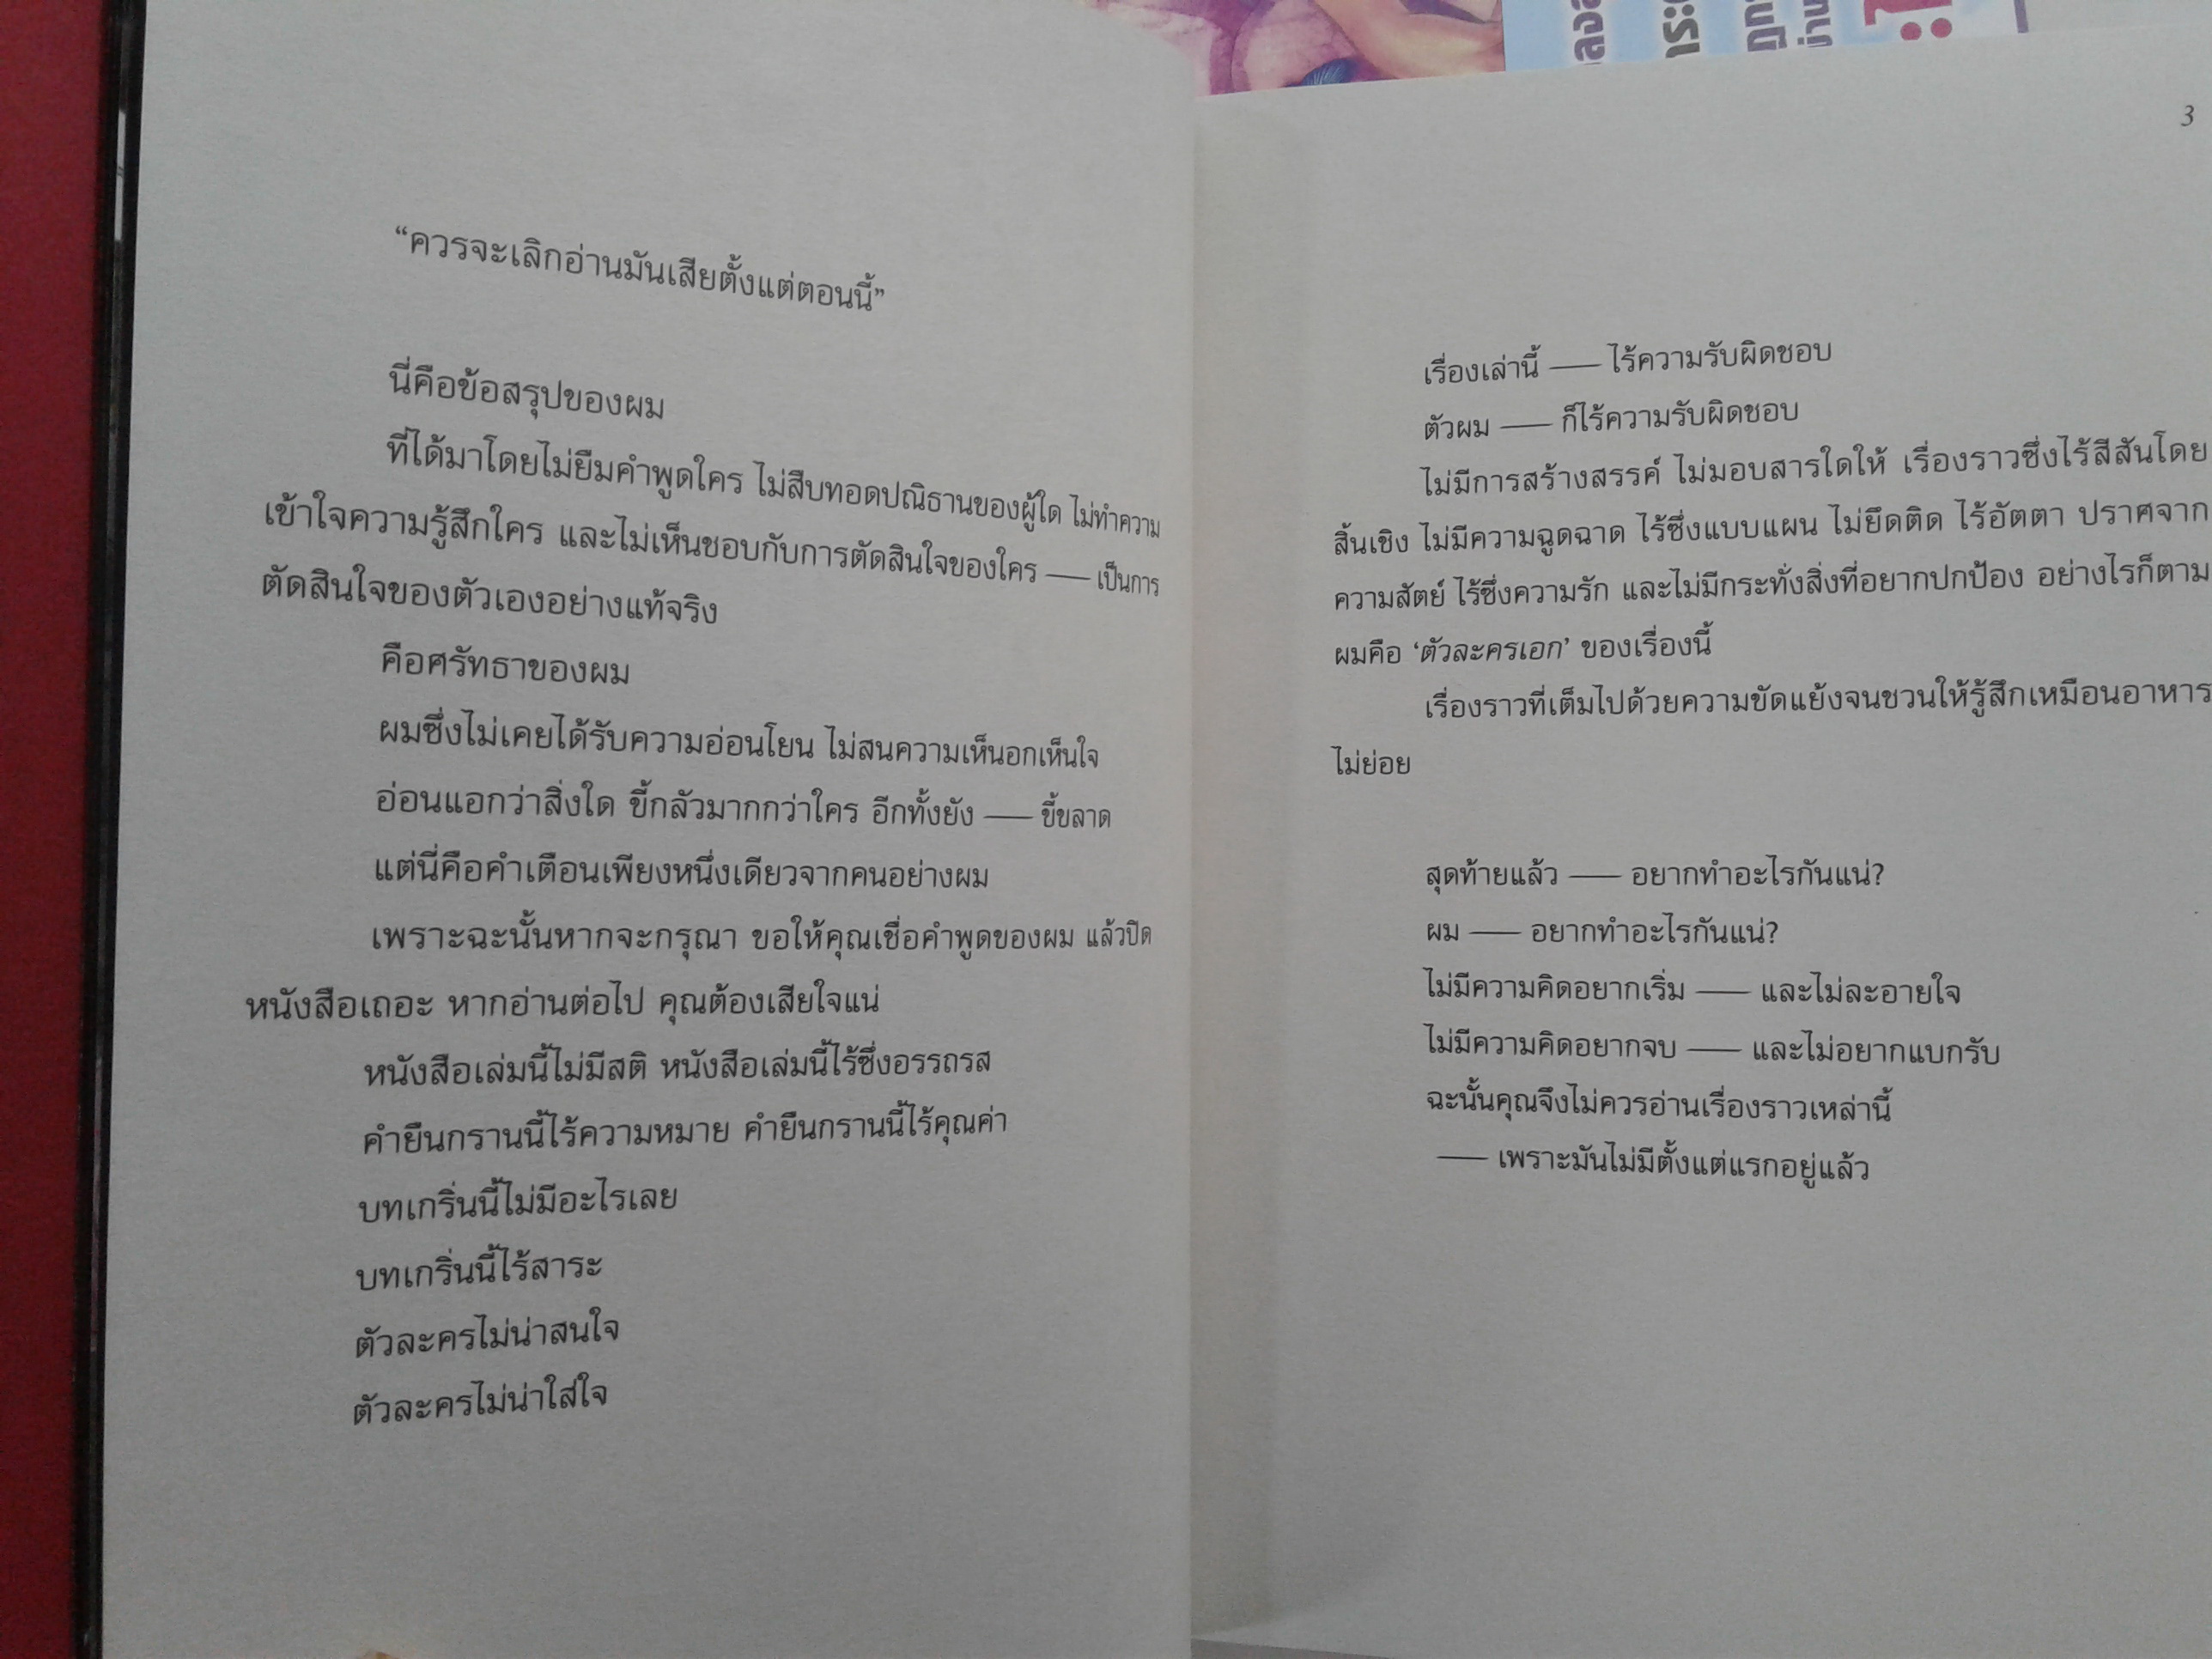 “ควรจะเลิกอ่านมันเสียตั้งแต่ตอนนี้”
นี่คือข้อสรุปของผม
ที่ได้มาโดยไม่ยืมคำพูดใคร ไม่สืบทอดปณิธานของผู้ใด ไม่ทำความ
เข้าใจความรู้สึกใคร และไม่เห็นชอบกับการตัดสินใจของใคร —— เป็นการ
ตัดสินใจของตัวเองอย่างแท้จริง
คือศรัทธาของผม
ผมซึ่งไม่เคยได้รับความอ่อนโยน ไม่สนความเห็นอกเห็นใจ
อ่อนแอกว่าสิ่งใด ขี้กลัวมากกว่าใคร อีกทั้งยัง —— ขี้ขลาด
แต่นี่คือคำเตือนเพียงหนึ่งเดียวจากคนอย่างผม
เพราะฉะนั้นหากจะกรุณา ขอให้คุณเชื่อคำพูดของผม แล้วปิด
หนังสือเถอะ หากอ่านต่อไป คุณต้องเสียใจแน่
หนังสือเล่มนี้ไม่มีสติ หนังสือเล่มนี้ไร้ซึ่งอรรถรส
คำยืนกรานนี้ไร้ความหมาย คำยืนกรานนี้ไร้คุณค่า
บทเกริ่นนี้ไม่มีอะไรเลย
บทเกริ่นนี้ไร้สาระ
ตัวละครไม่น่าสนใจ
ตัวละครไม่น่าใส่ใจ
3
เรื่องเล่านี้ —— ไร้ความรับผิดชอบ
ตัวผม —— ก็ไร้ความรับผิดชอบ
ไม่มีการสร้างสรรค์ ไม่มอบสารใดให้ เรื่องราวซึ่งไร้สีสันโดย
สิ้นเชิง ไม่มีความฉูดฉาด ไร้ซึ่งแบบแผน ไม่ยึดติด ไร้อัตตา ปราศจาก
ความสัตย์ ไร้ซึ่งความรัก และไม่มีกระทั่งสิ่งที่อยากปกป้อง อย่างไรก็ตาม
ผมคือ ‘ตัวละครเอก’ ของเรื่องนี้
เรื่องราวที่เต็มไปด้วยความขัดแย้งจนชวนให้รู้สึกเหมือนอาหาร
ไม่ย่อย
สุดท้ายแล้ว —— อยากทำอะไรกันแน่?
ผม —— อยากทำอะไรกันแน่?
ไม่มีความคิดอยากเริ่ม —— และไม่ละอายใจ
ไม่มีความคิดอยากจบ —— และไม่อยากแบกรับ
ฉะนั้นคุณจึงไม่ควรอ่านเรื่องราวเหล่านี้
—— เพราะมันไม่มีตั้งแต่แรกอยู่แล้ว